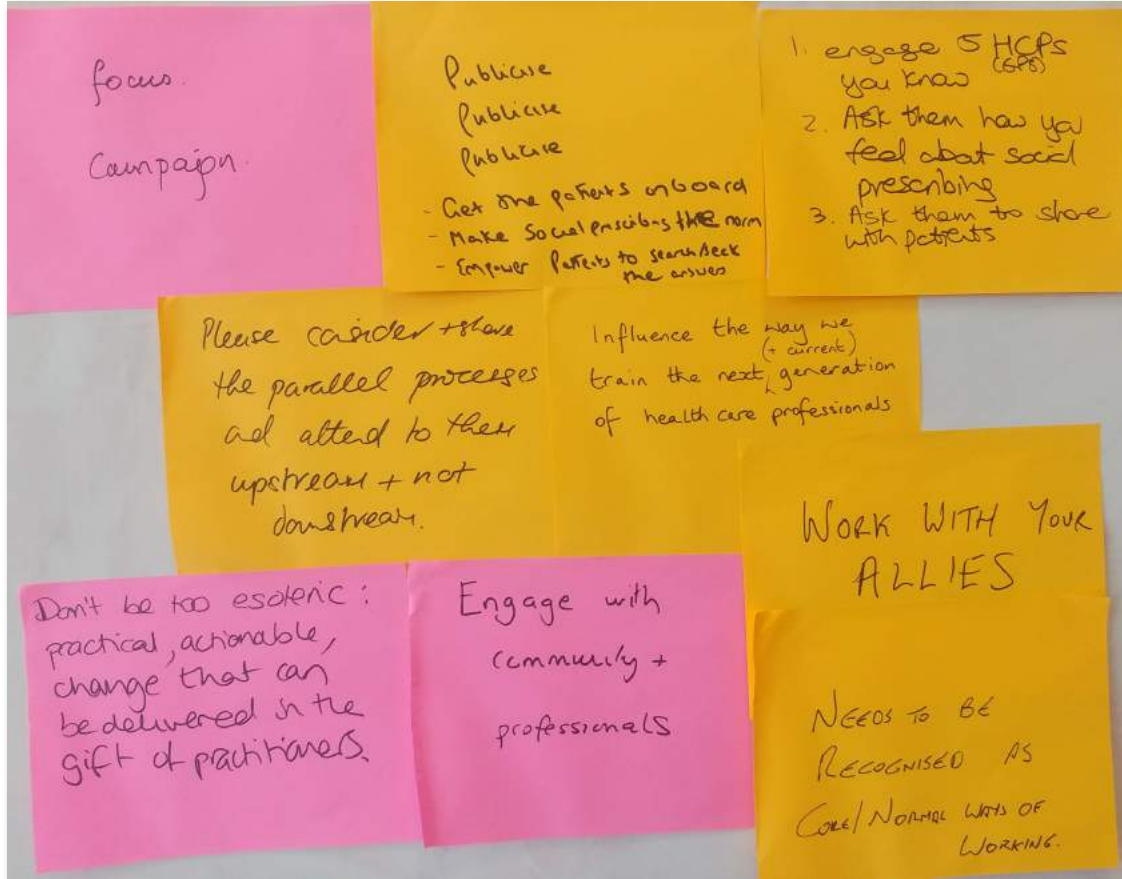 focus.
Campaign.
Publicise
Publicise
Publicise
- Get the patients onboard
- Make Social prescribing the norm
- Empower Patients to search/seek
the answer
1. engage 5 HCPs
(GPs)
you know
2. Ask them how you
feel about social
prescribing
3. Ask them to share
with patients
Please consider + share
the parallel processes
and attend to them
upstream + not
downstream.
Influence the way we
(+ current)
train the next generation
of health care professionals
WORK WITH YOUR
ALLIES
Don't be too esoteric :
practical, actionable,
change that can
be delivered in the
gift of practitioners.
Engage with
community +
professionals
NEEDS TO BE
RECOGNISED AS
CORE/NORMAL WAYS OF
WORKING.